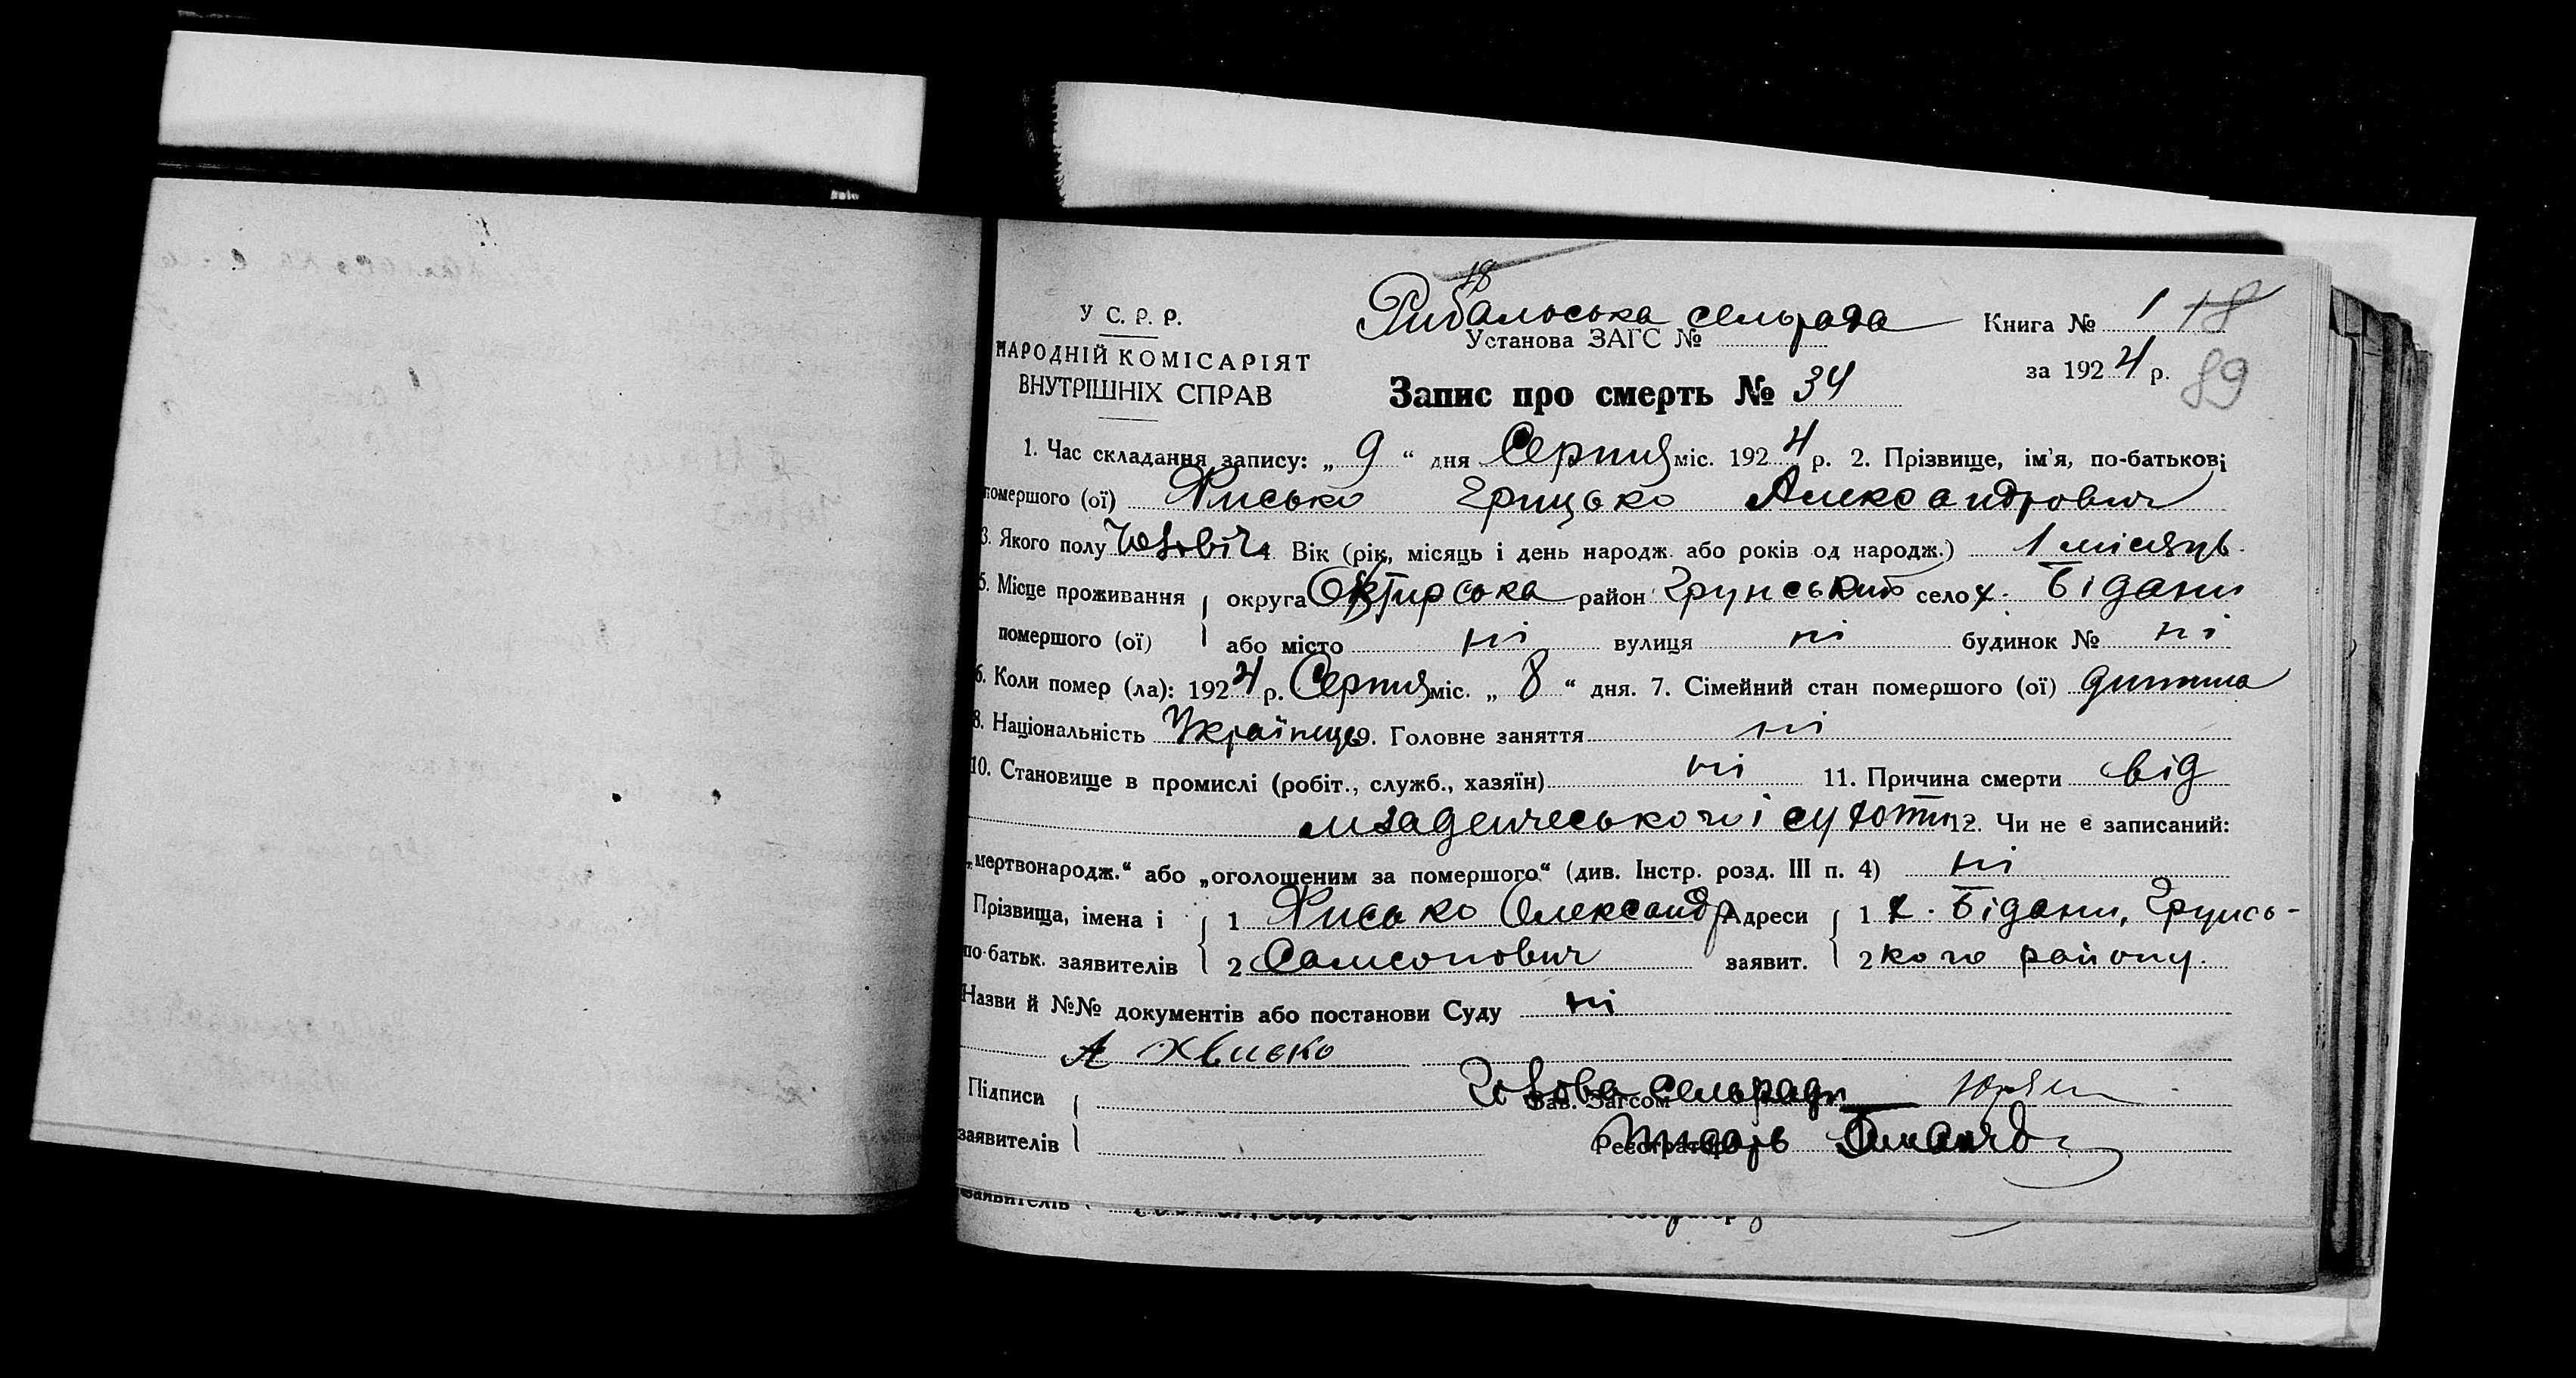 18
Рибальська сельрада
У С. Р. Р.
Установа ЗАГС №
Книга № 1 18
НАРОДНІЙ КОМІСАРІЯТ
ВНУТРІШНІХ СПРАВ
за 1924 р. 89
Запис про смерть № 34
1. Час складання запису: „ 9 “ дня Серпня міс. 1924 р. 2. Прізвище, ім’я, по-батькові
помершого (ої) Хвисько Грицько Александрович
3. Якого полу Чоловіч 4. Вік (рік, місяць і день народж. або років од народж.) 1 місяць.
5. Місце проживання округа Охтирська район Грунський село х. Бідани
помершого (ої) або місто ні вулиця ні будинок № ні
6. Коли помер (ла): 1924 р. Серпня міс. „ 8 “ дня. 7. Сімейний стан помершого (ої) дитина
8. Національність Українець 9. Головне заняття ні
10. Становище в промислі (робіт., служб., хазяїн) ні 11. Причина смерти від
младенческого і сухоти 12. Чи не є записаний:
„мертвонародж.“ або „оголошеним за помершого“ (див. Інстр. розд. III п. 4) ні
Прізвища, імена і 1 Хвисько Олександр Адреси 1 х. Бідани, Грунсь-
по-батьк. заявителів 2 Самсонович заявит. 2 кого району.
Назви й №№ документів або постанови Суду ні
А Хвисько
Підписи Зав. Загсом Голова сельради
заявителів Реєстратор Писарь
заявителів